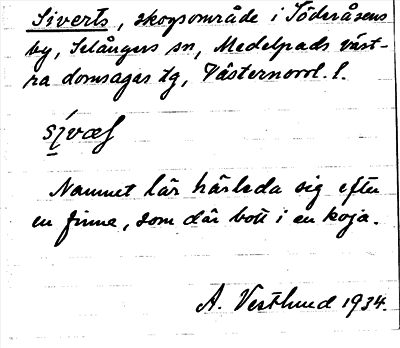 Siverts, skogsområde i Söderåsens
by, Selångers sn, Medelpads väst-
ra domsagas tg, Västernorrl. l.
Namnet lär härleda sig efter
en finne, som där bott i en koja.
A. Vestlund 1934.